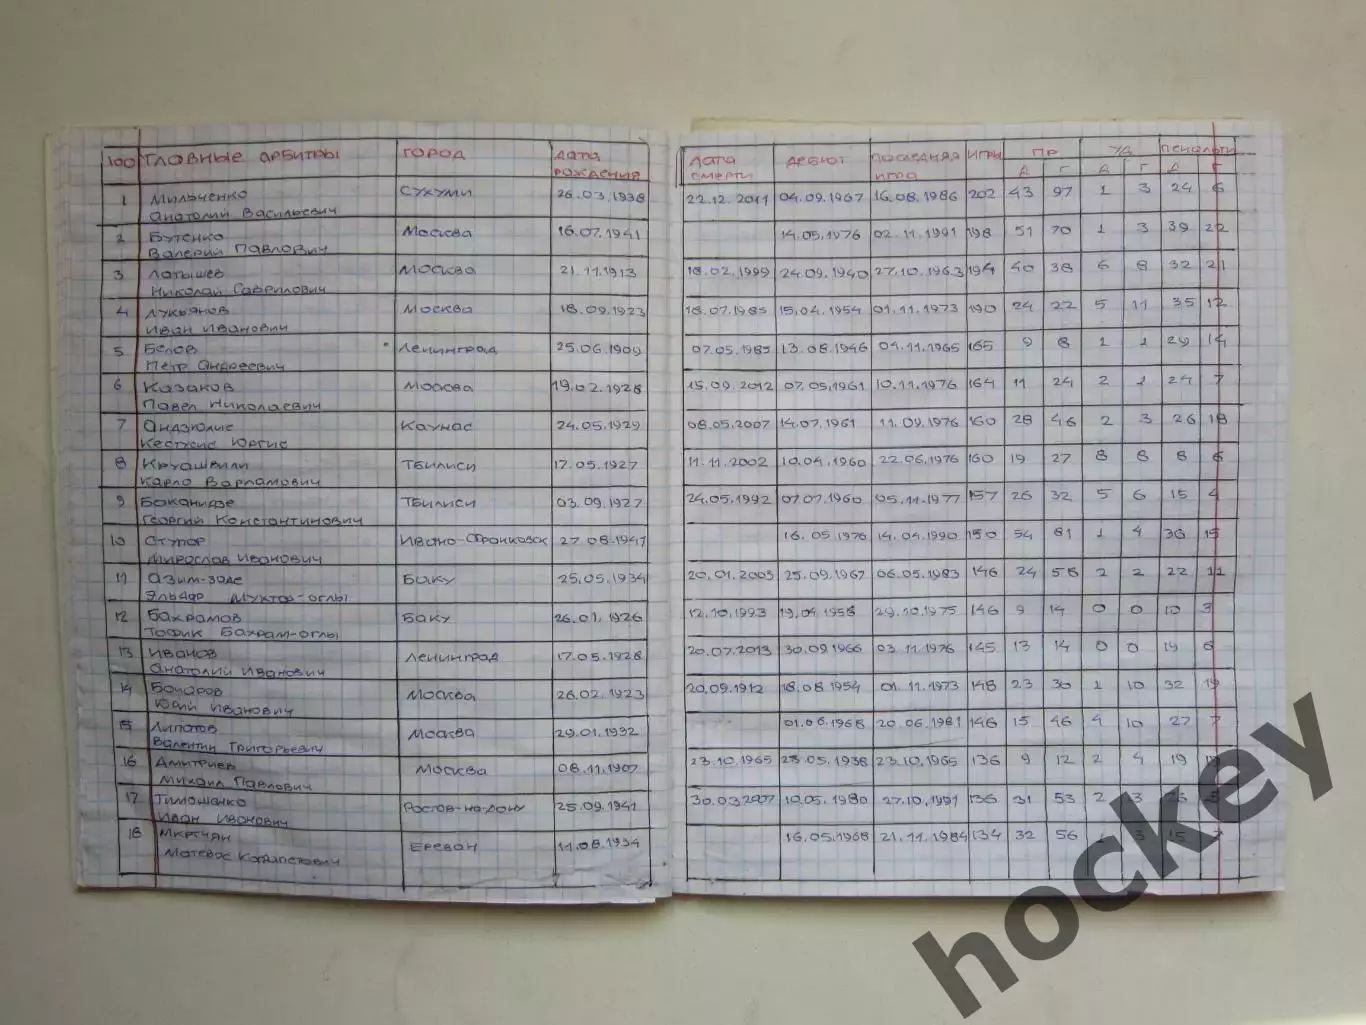 100 ГЛАВНЫЕ АРБИТРЫ ГОРОД ДАТА РОЖДЕНИЯ ДАТА СМЕРТИ ДЕБЮТ ПОСЛЕДНЯЯ ИГРА ИГРЫ ПР УД ПЕНАЛЬТИ
Д Г Д Г Д Г
1 Мильченко Сухуми 26.03.1938 22.12.2011 04.09.1967 16.08.1986 202 43 97 1 3 24 6
Анатолий Васильевич
2 Бутенко Москва 16.07.1941 14.05.1976 02.11.1991 198 51 70 1 3 39 22
Валерий Павлович
3 Латышев Москва 21.11.1913 18.02.1999 24.09.1940 27.10.1963 194 40 38 6 8 32 21
Николай Гаврилович
4 Лукьянов Москва 18.09.1923 18.07.1985 15.04.1954 01.11.1973 190 24 22 5 11 35 12
Иван Иванович
5 Белов Ленинград 25.06.1909 07.05.1985 13.08.1946 04.11.1965 165 9 8 1 1 29 14
Петр Андреевич
6 Казаков Москва 19.02.1928 15.09.2012 07.05.1961 10.11.1976 164 11 24 2 1 24 7
Павел Николаевич
7 Андзюлис Каунас 24.05.1929 08.05.2007 14.07.1961 11.09.1976 160 28 46 2 3 26 18
Кестутис Юргис
8 Круашвили Тбилиси 17.05.1927 11.11.2002 10.04.1960 22.06.1976 160 19 27 8 8 8 6
Карло Варламович
9 Баканидзе Тбилиси 03.09.1927 24.05.1992 07.07.1960 05.11.1977 157 26 32 5 6 15 4
Георгий Константинович
10 Ступор Ивано-Франковск 27.08.1947 16.05.1976 14.04.1990 150 54 81 1 4 30 15
Мирослав Иванович
11 Азим-заде Баку 25.05.1934 20.01.2003 25.09.1967 06.05.1983 146 24 58 2 2 22 11
Эльдар Мухтар-оглы
12 Бахрамов Баку 26.01.1926 12.10.1993 19.04.1958 29.10.1975 146 9 14 0 0 10 3
Тофик Бахрам-оглы
13 Иванов Ленинград 17.05.1928 20.07.2013 30.09.1966 03.11.1976 145 13 14 0 0 19 6
Анатолий Иванович
14 Бочаров Москва 26.02.1923 20.09.1912 18.08.1954 01.11.1973 148 23 30 1 10 32 19
Юрий Иванович
15 Липатов Москва 29.01.1932 01.06.1968 20.06.1981 146 15 46 4 10 27 7
Валентин Григорьевич
16 Дмитриев Москва 08.11.1907 23.10.1965 28.05.1938 23.10.1965 136 9 12 2 4 19
Михаил Павлович
17 Тимошенко Ростов-на-Дону 25.09.1941 30.03.2007 10.05.1980 27.10.1991 136 31 53 2 3 26 5
Иван Иванович
18 Мкртчян Ереван 11.08.1934 16.05.1968 21.11.1984 134 32 56 1 3 15 7
Матевос Карапетович
hockey